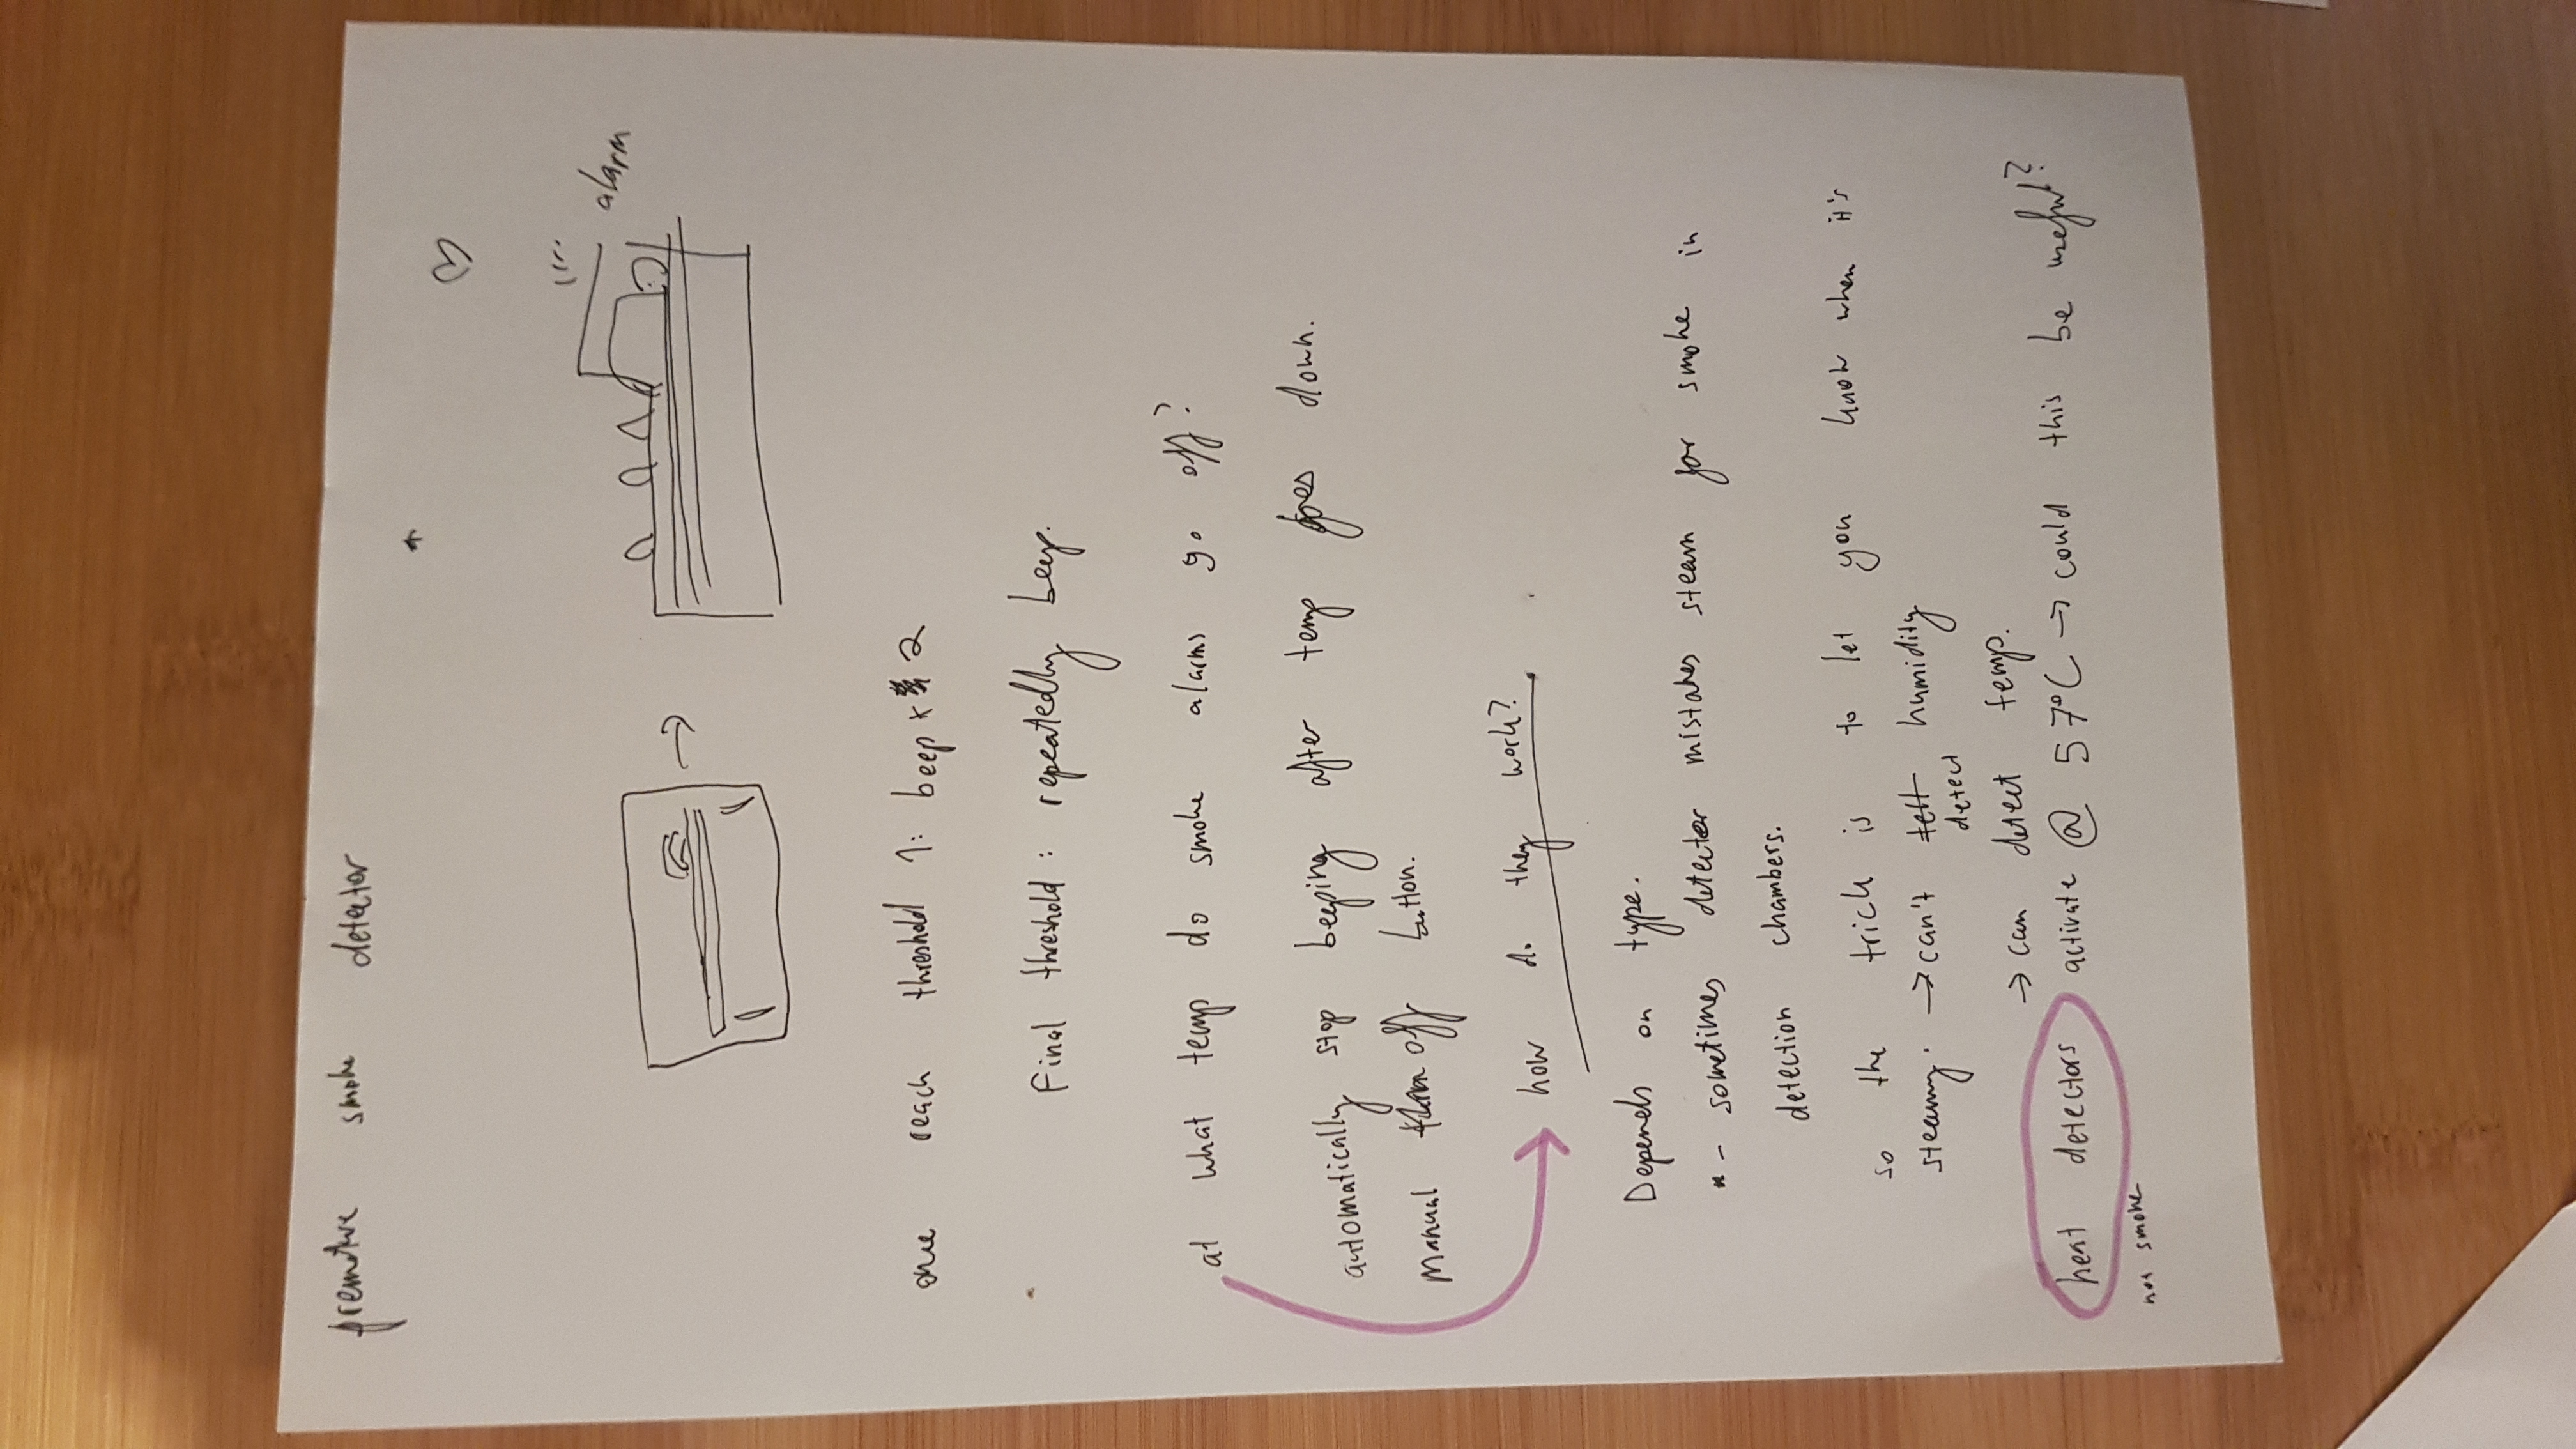 premetive smoke detector
alarm
one reach threshold 1: beep x 2
Final threshold: repeatedly beep.
at what temp do smoke alarms go off?
automatically stop beeping after temp goes down.
Manual turn off button.
how do they work?
Depends on type.
- sometimes detector mistakes steam for smoke in
detection chambers.
so the trick is to let you know when it's
steamy. → can't tell humidity
detect
→ can detect temp.
heat detectors activate @ 57°C → could this be useful?
not smoke